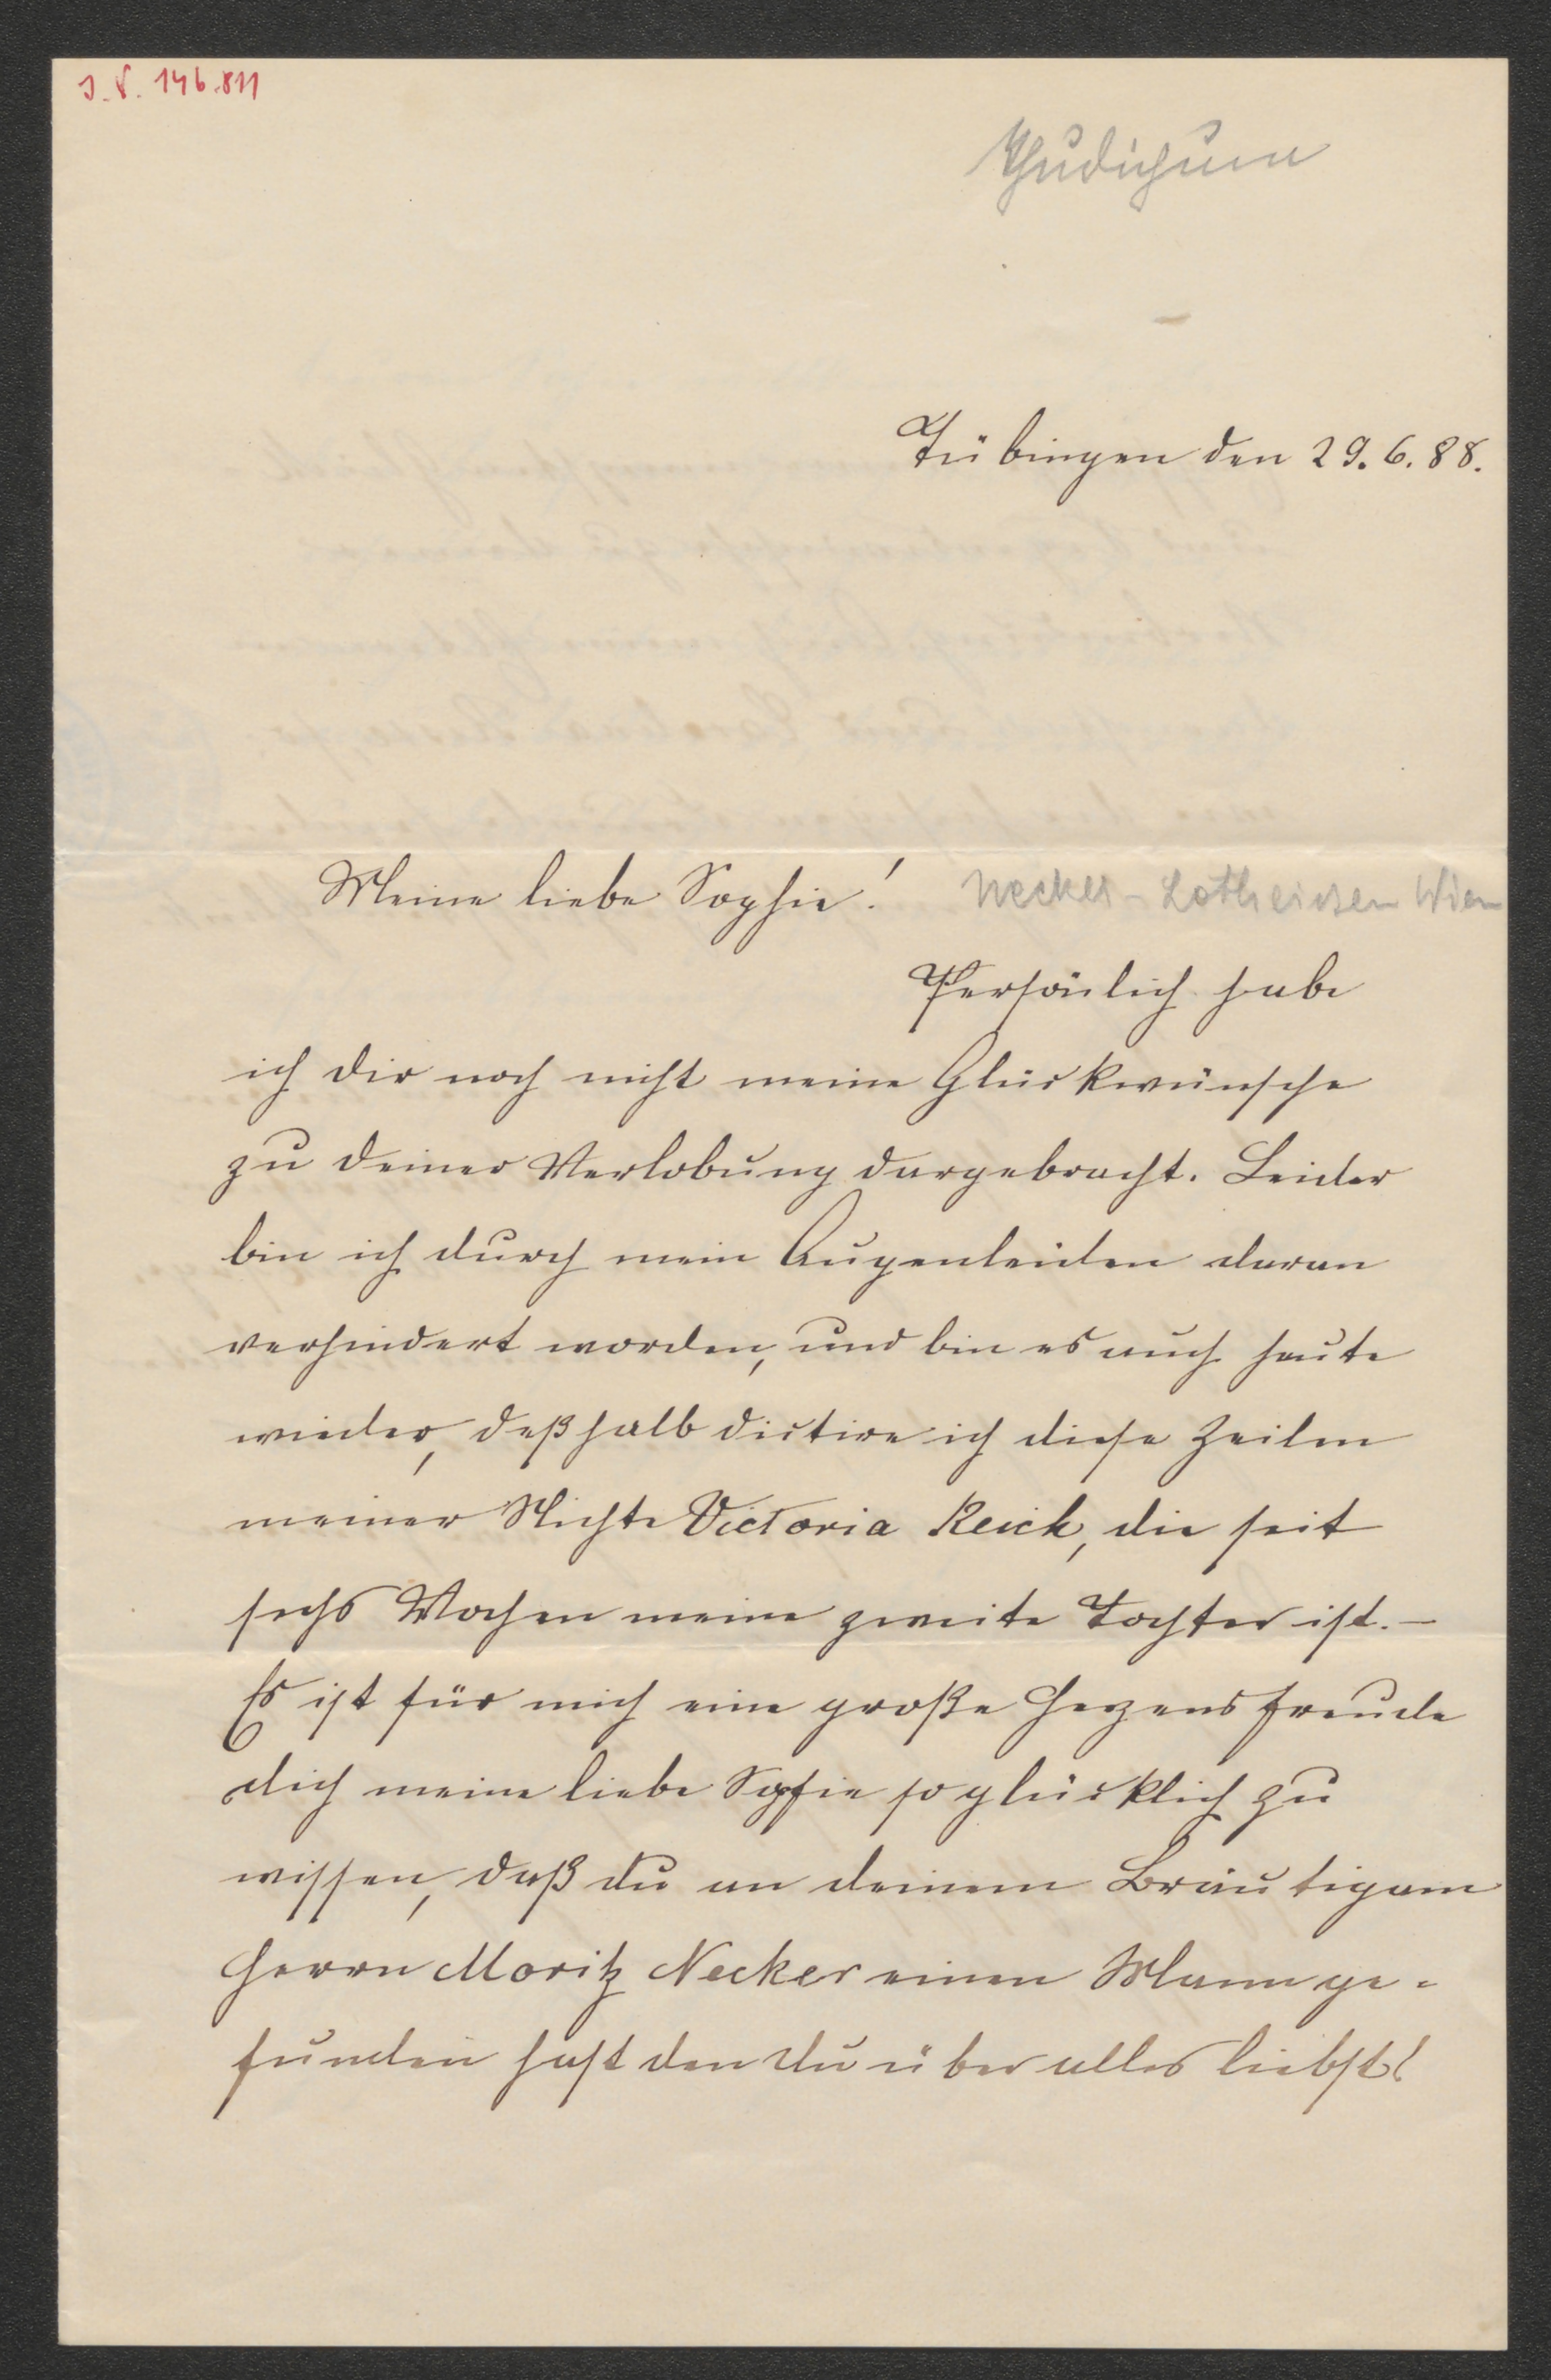 I. N. 146.811
Thudichum
Tübingen den 29. 6. 88.
Meine liebe Sophie! Necker-Lotheissen Wien
Persönlich habe
ich dir noch nicht meine Glückwünsche
zu deiner Verlobung dargebracht. Leider
bin ich durch mein Augenleiden daran
verhindert worden, und bin es auch heute
wieder, deßhalb dictire ich diese Zeilen
meiner Nichte Victoria Reich, die seit
sechs Wochen meine zweite Tochter ist. –
Es ist für mich eine große Herzensfreude
dich meine liebe Sophie so glücklich zu
wissen, daß du an deinem Bräutigam
Herrn Moritz Necker einen Mann ge-
funden hast den du über alles liebst!